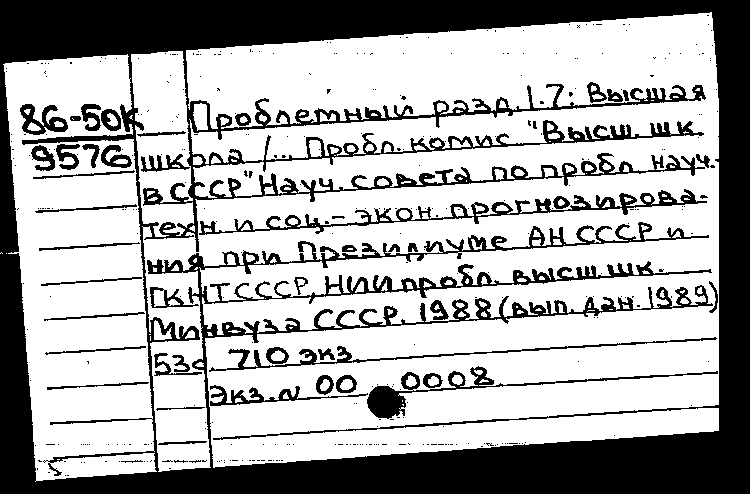 86-50К
9576
Проблемный разд. 1.7: Высшая
школа /... Пробл. комис "Высш. шк.
в СССР" Науч. совета по пробл науч.-
техн. и соц.-экон. прогнозирова-
ния при Президиуме АН СССР и
ГКНТ СССР, НИИ пробл. высш. шк.
Минвуза СССР. 1988 (вып. дан. 1989)
53с. 710 экз.
Экз. N 00 0008